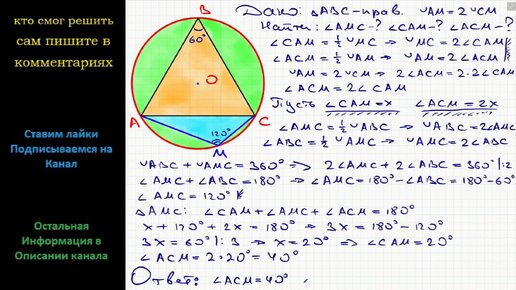 кто смог решить
сам пишите в
комментариях
Ставим лайки
Подписываемся на
Канал
Остальная
Информация в
Описании канала
B
60°
O
A
C
120°
M
Дано: △ABC-прав. ◡AM=2◡CM
Найти: ∠AMC-? ∠CAM-? ∠ACM-?
∠CAM=½◡MC ⇒ ◡MC=2∠CAM
∠ACM=½◡AM ⇒ ◡AM=2∠ACM
◡AM=2◡CM ⇒ 2∠ACM=2·2∠CAM
Пусть ∠CAM=x ∠ACM=2x
∠AMC=½◡ABC ⇒ ◡ABC=2∠AMC
∠ABC=½◡AMC ⇒ ◡AMC=2∠ABC
◡ABC+◡AMC=360° ⇒ 2∠AMC+2∠ABC=360°|:2
∠AMC+∠ABC=180° ⇒ ∠AMC=180°-∠ABC=180°-60°
∠AMC=120°
△AMC: ∠CAM+∠AMC+∠ACM=180°
x+120°+2x=180° ⇒ 3x=180°-120°
3x=60°|:3 ⇒ x=20° ⇒ ∠CAM=20°
∠ACM=2·20°=40°
Ответ: ∠ACM=40°